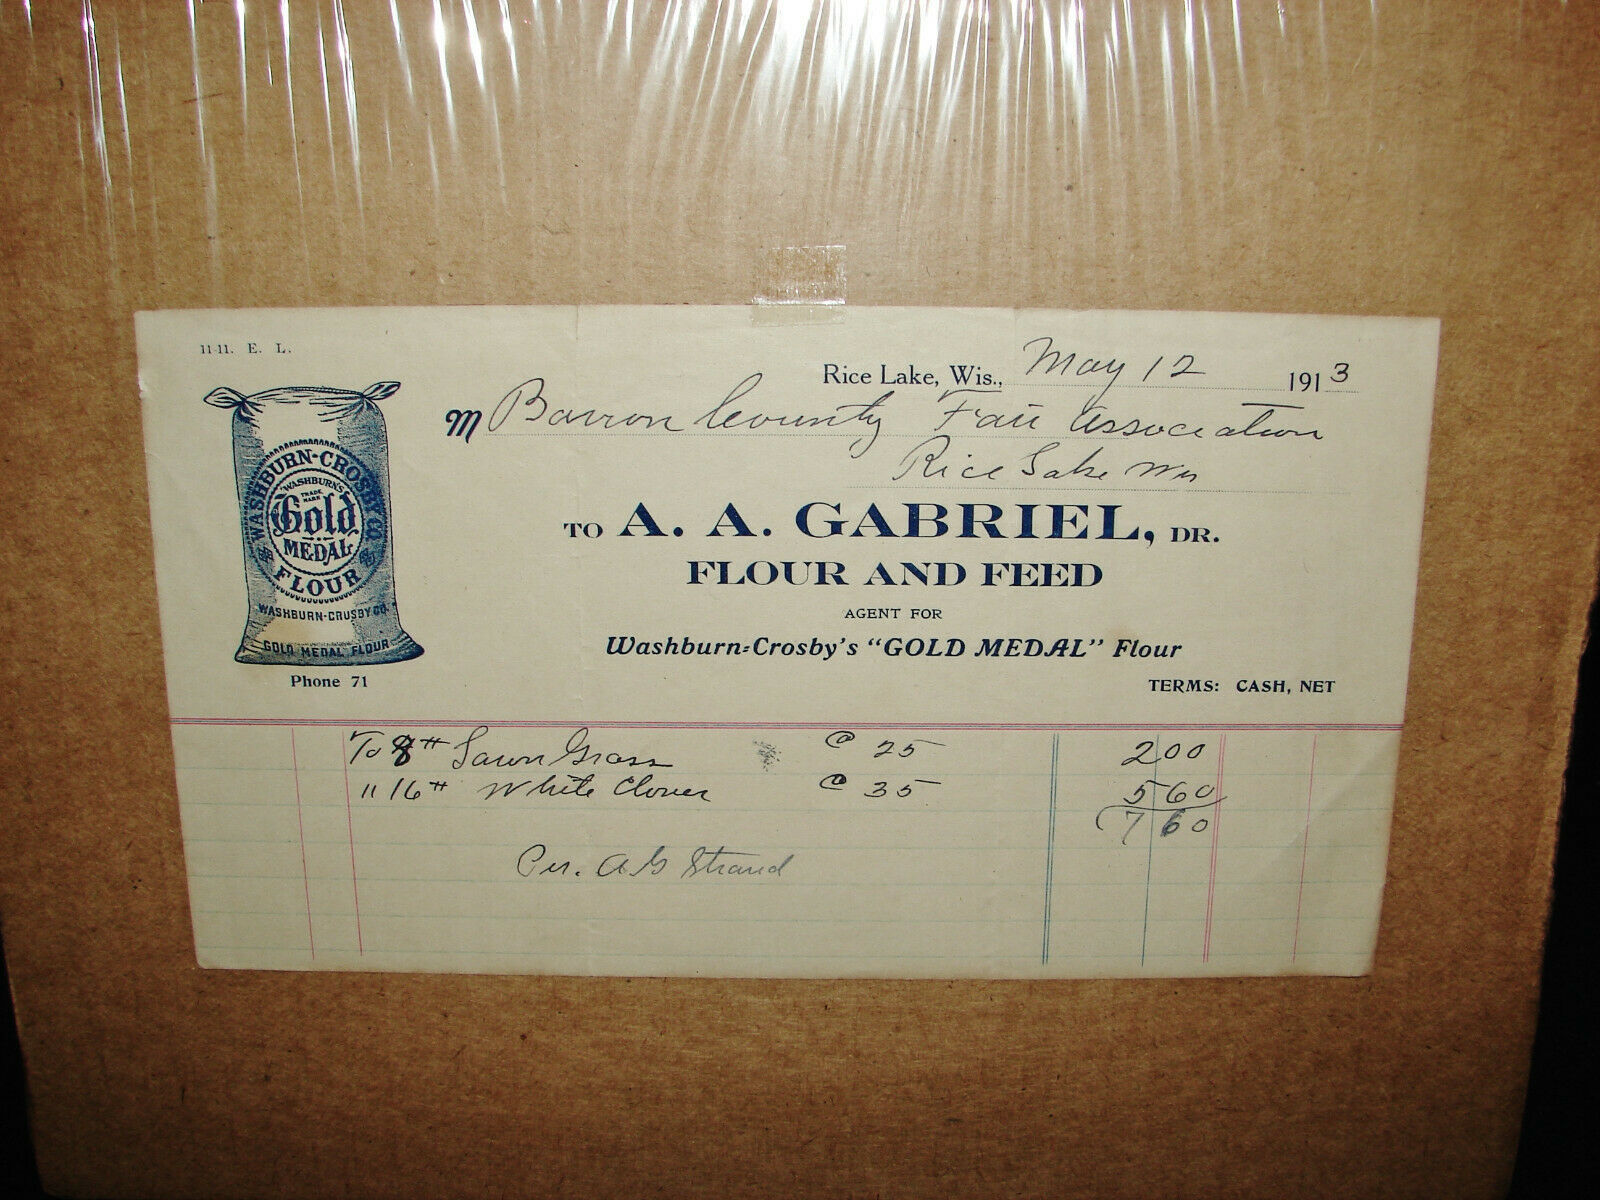 11-11. E. L.
Rice Lake, Wis., May 12 1913
M Barron County Fair Association
Rice Lake Wis
TO A. A. GABRIEL, DR.
FLOUR AND FEED
AGENT FOR
Washburn-Crosby's "GOLD MEDAL" Flour
TERMS: CASH, NET
WASHBURN-CROSBY CO.
WASHBURN'S
TRADE MARK
Gold
MEDAL
FLOUR
WASHBURN-CROSBY CO.
GOLD MEDAL FLOUR
Phone 71
To 8# Lawn Grass @ 25 2 00
" 16# White Clover @ 35 5 60
7 60
Per. A G Strand